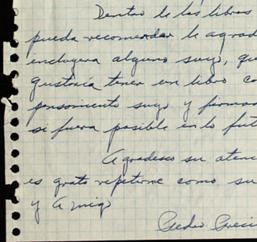 Dentro de los libros
pueda recomendar le agrad
incluyera alguno suyo, qu
gustaría tener un libro co
pensamiento suyo y firmad
si fuera posible en lo fut
Agradezco su aten
es grato repetirme como su
y Amigo
Pedro